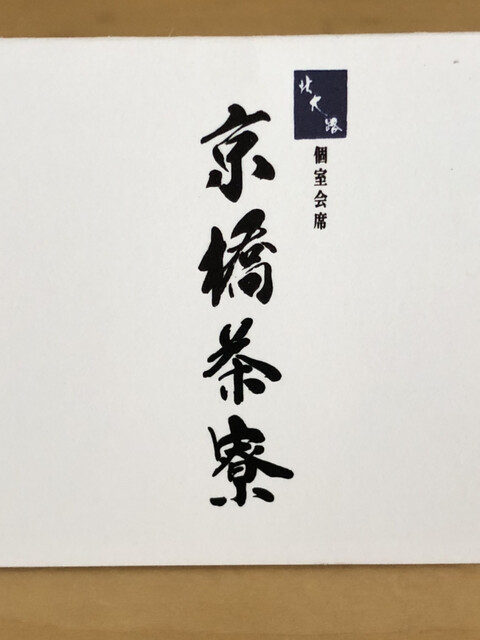 北大路
個室会席
京橋茶寮